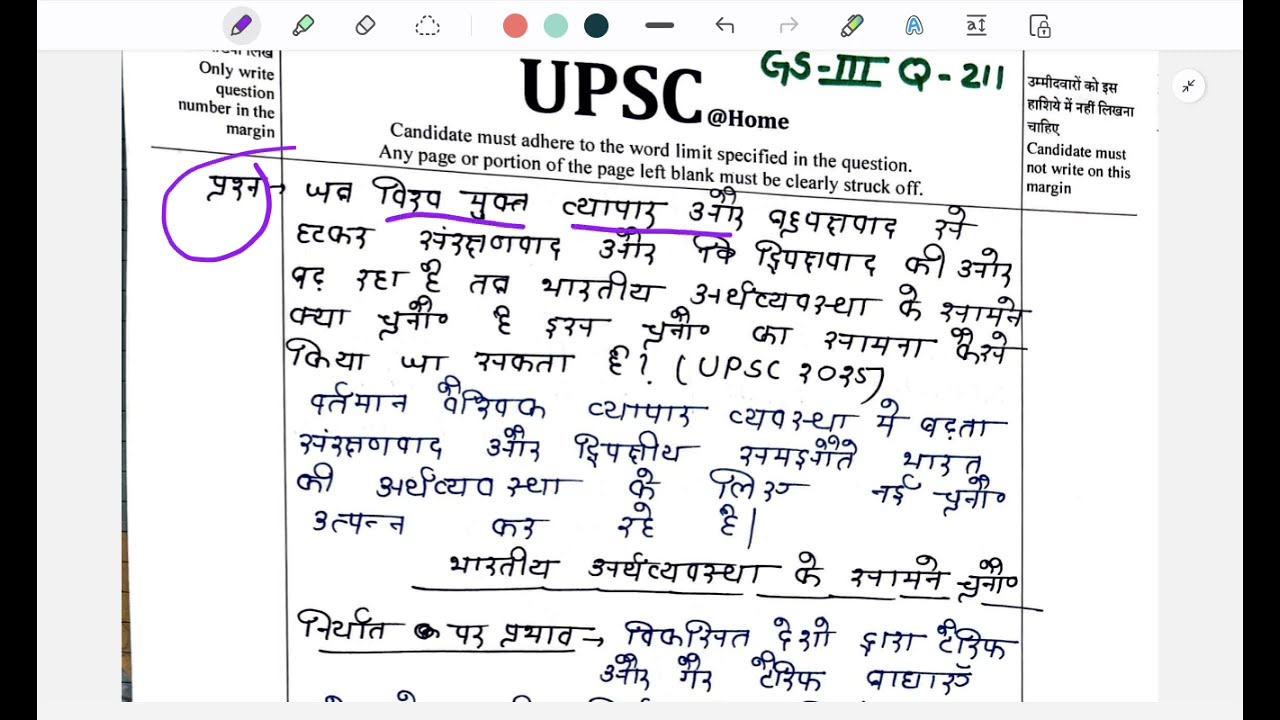 Only write
question
number in the
margin
UPSC @Home
GS-III Q-211
Candidate must adhere to the word limit specified in the question.
Any page or portion of the page left blank must be clearly struck off.
उम्मीदवारों को इस
हाशिये में नहीं लिखना
चाहिए
Candidate must
not write on this
margin
प्रश्न → जब विश्व मुक्त व्यापार और बहुपक्षवाद से
हटकर संरक्षणवाद और द्विपक्षवाद की ओर
बढ़ रहा है तब भारतीय अर्थव्यवस्था के सामने
क्या चुनौ० है इस चुनौ० का सामना कैसे
किया जा सकता है? (UPSC २०२५)
वर्तमान वैश्विक व्यापार व्यवस्था मे बढ़ता
संरक्षणवाद और द्विपक्षीय समझौते भारत
की अर्थव्यवस्था के लिए नई चुनौ०
उत्पन्न कर रहे है|
भारतीय अर्थव्यवस्था के सामने चुनौ०
निर्यात पर प्रभाव → विकसित देशो द्वारा टैरिफ
और गैर टैरिफ बाधाएँ